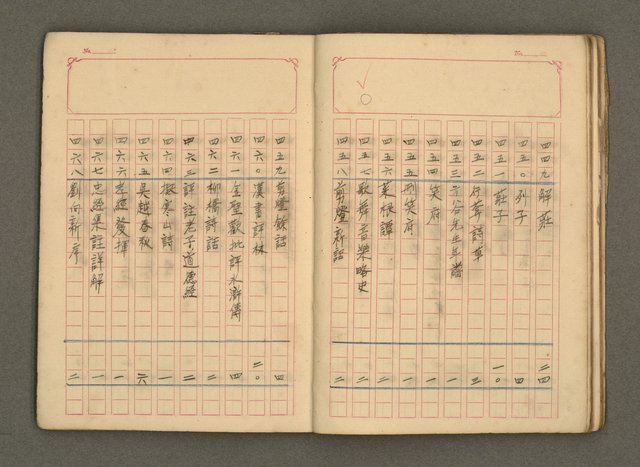 No.
四四九 解莊 二四
四五〇 列子 四
四五一 莊子 一〇
四五二 行葦詩草 三
四五三 谷先生年譜 一
四五四 笑府 一
四五五 刑笑府 一
四五六 菜根譚 二
四五七 歌舞音樂略史 二
四五八 剪燈新話 二
No.
四五九 剪燈餘話 四
四六〇 漢書評林 二〇
四六一 金聖歎批評水滸傳 四
四六二 柳橋詩話 二
四六三 評註老子道德經 二
四六四 擬寒山詩 一
四六五 吳越春秋 六
四六六 孝經發揮 一
四六七 忠經集註詳解 一
四六八 劉向新序 二